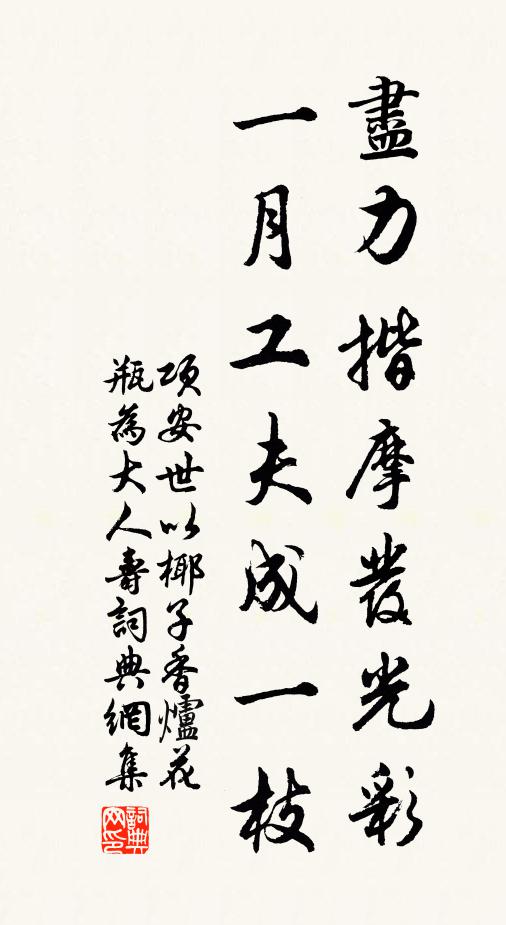 盡力揩摩發光彩
一月工夫成一枝
項安世以椰子香爐花
瓶為大人壽詞典網集
詞典
网印